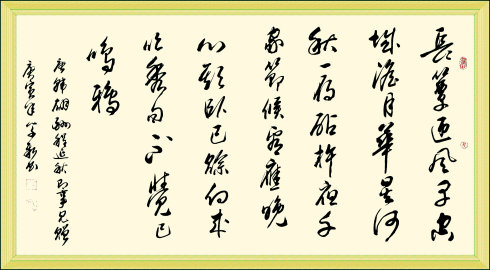 長簟迎风早空
城澹月華星河
秋一雁砧杵夜千
家節候看應晚
心期卧已賖向来
吟秀句不覺已
鳴鴉
唐韓翃酬程延秋即事見贈
庚寅年書